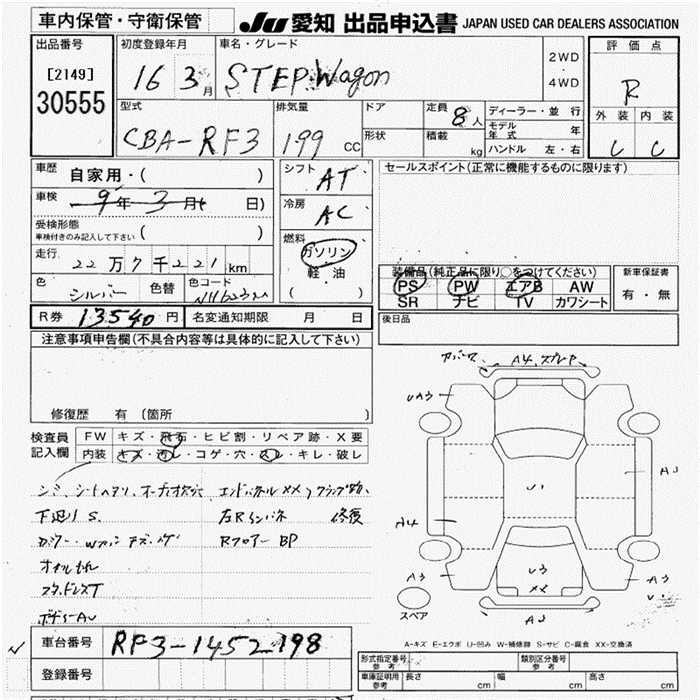 車内保管・守衛保管
JU 愛知 出品申込書 JAPAN USED CAR DEALERS ASSOCIATION
出品番号
[2149]
30555
初度登録年月
16 3月
車名・グレード
STEP Wagon
2WD
・
4WD
評価点
R
外装 内装
C C
型式
CBA-RF3
排気量
1.99 CC
ドア
形状
定員 8人
積載 kg
ディーラー・並行
モデル年式 年
ハンドル 左・右
車歴
自家用・( )
車検
9年 3月( 日)
受検形態
車検付きのみ記入して下さい ( )
走行
22万7千221km
色
シルバー
色替
色コード
シフト
AT
冷房
AC
燃料
ガソリン
軽・油
( )
セールスポイント(正常に機能するものに限ります)
装備品(純正品に限り○をつけてください)
PS PW エアB AW
SR ナビ TV カワシート
新車保証書
有・無
R券 13540円
名変通知期限 月 日
後日品
注意事項申告欄(不具合内容等は具体的に記入して下さい)
修復歴 有 〔箇所 〕
検査員
記入欄
FW キズ・飛石・ヒビ割・リペア跡・X要
内装 キズ・汚レ・コゲ・穴・スレ・キレ・破レ
下廻りS.
修復
RフロアーBP
A4
UA3
A4
A3
U3
XX
A3
スペア
A-キズ E-エクボ U-凹み W-補修跡 S-サビ C-腐食 XX-交換済
車台番号
RF3-1452198
登録番号
形式指定番号
参考
類別区分番号
参考
車庫証明用
参考
長さ cm
幅 cm
高さ cm